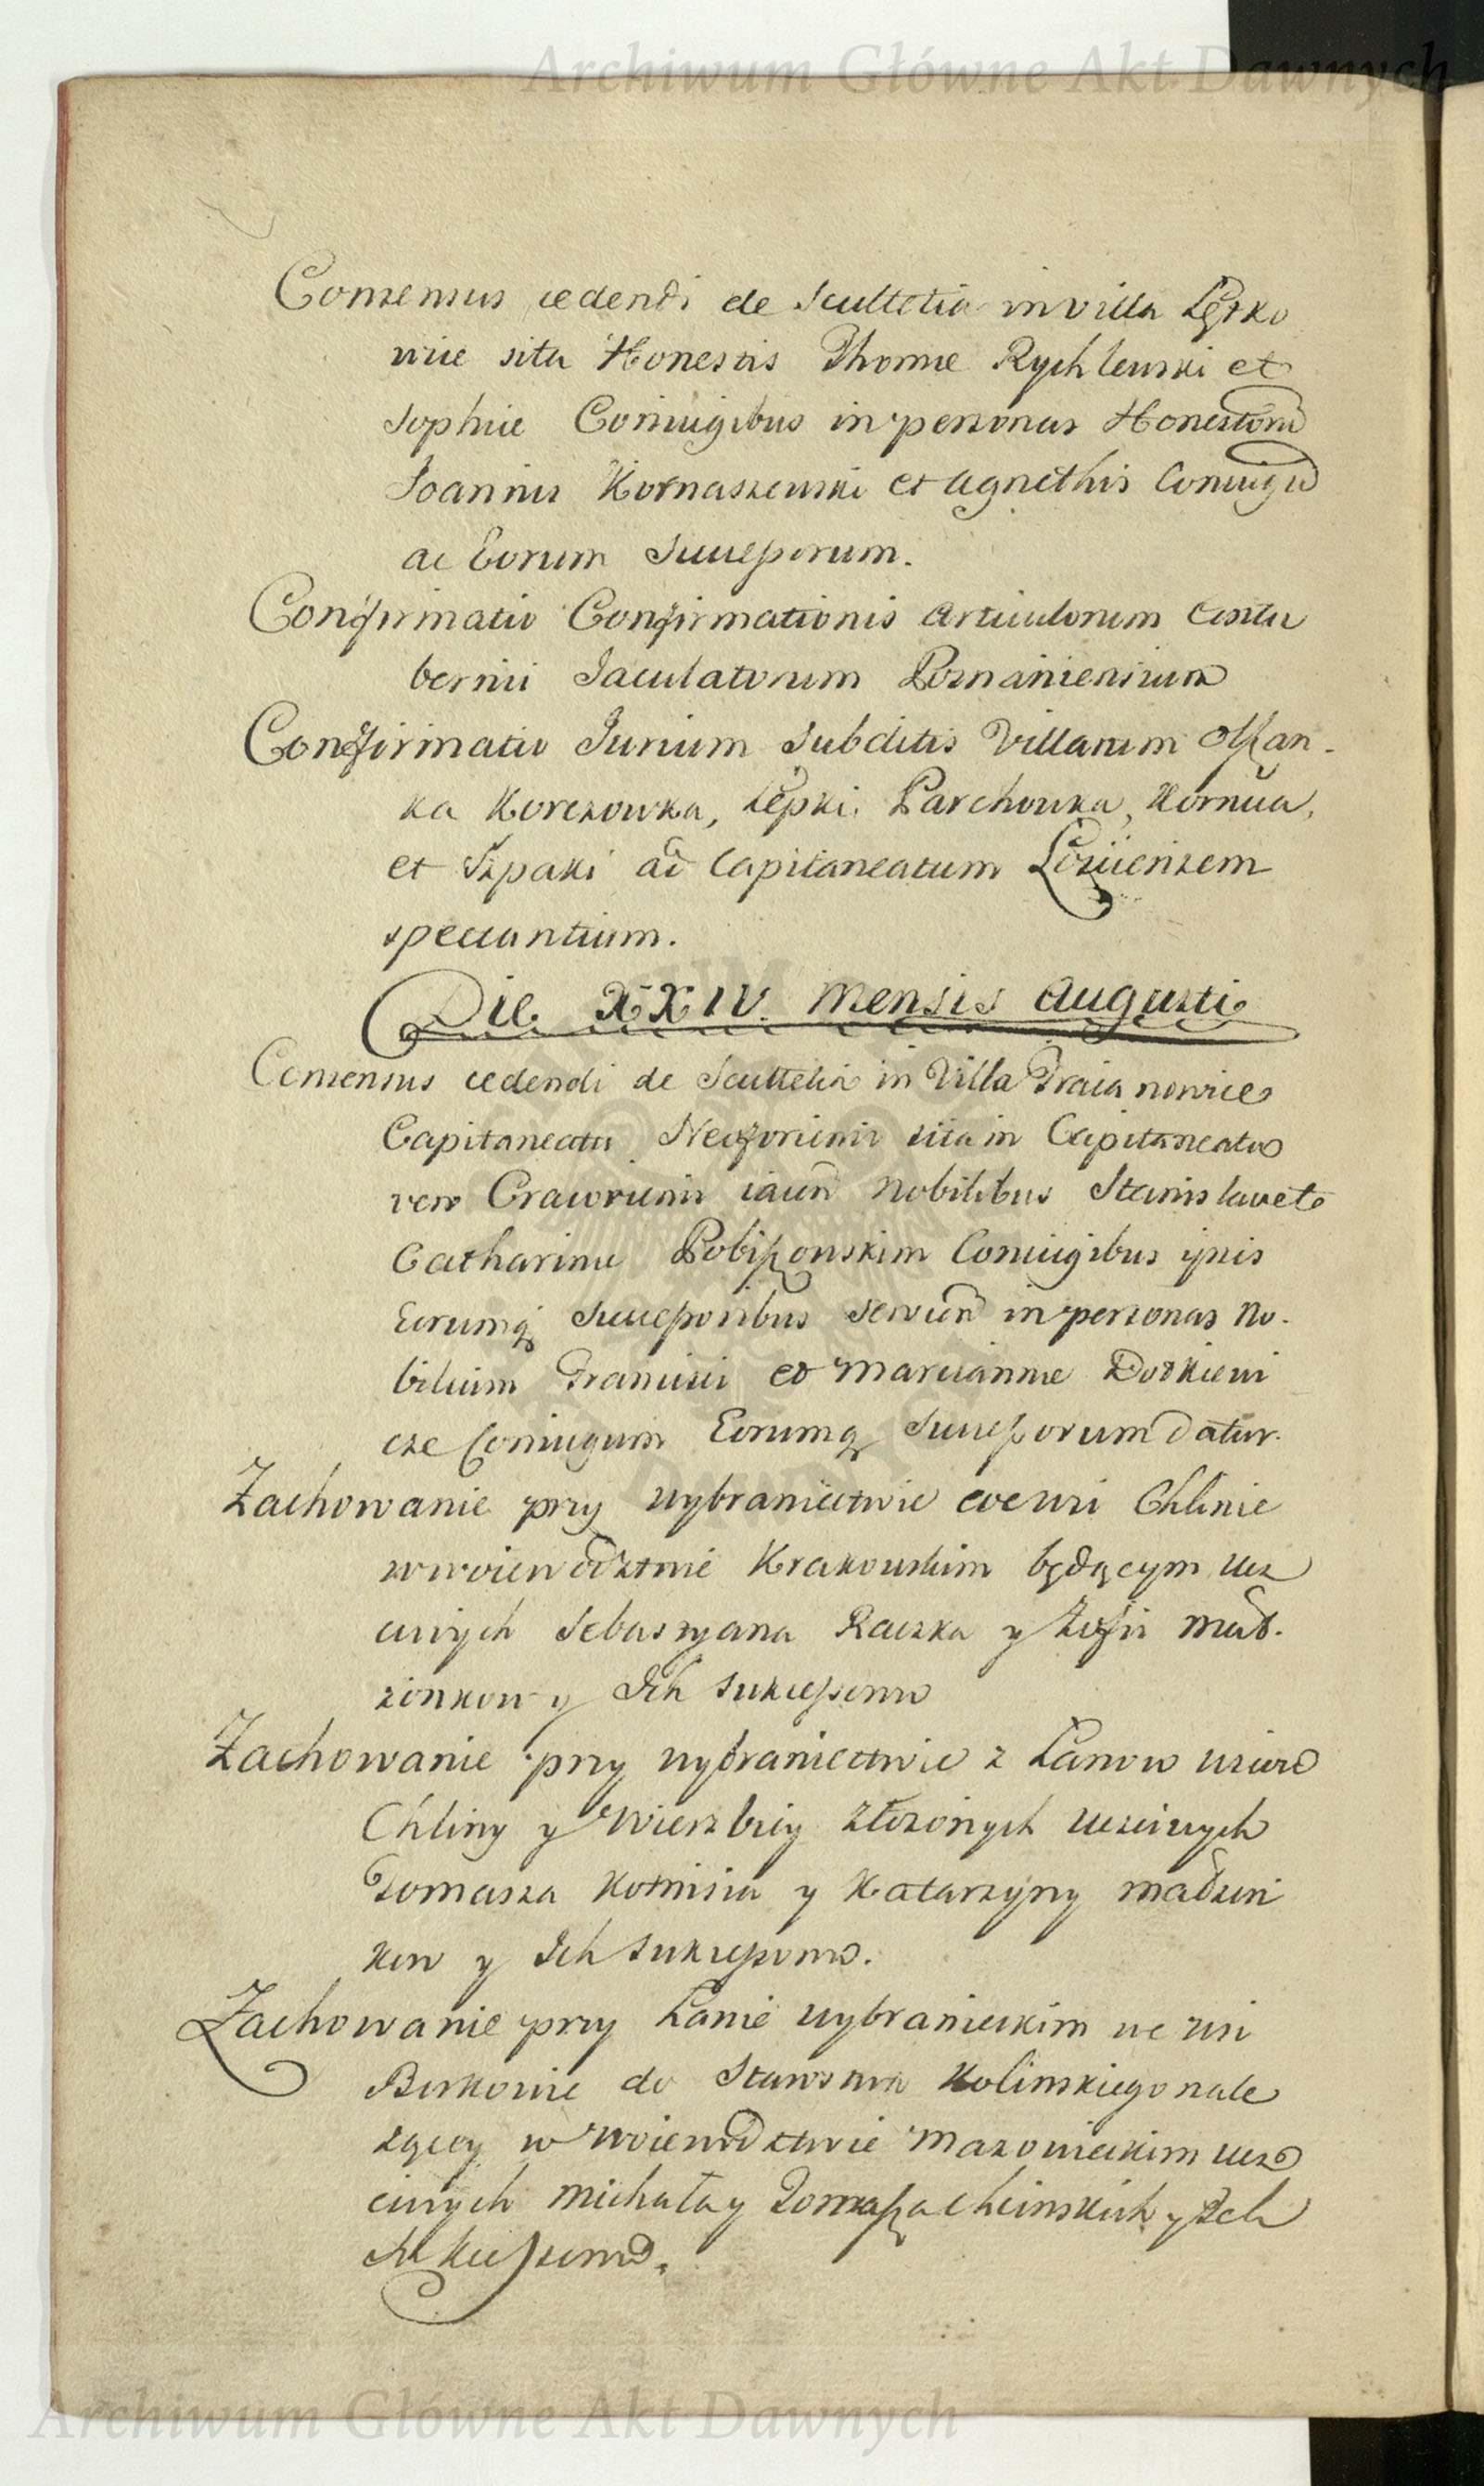 Archiwum Główne Akt Dawnych
Consensus cedendi de Scultetia in villa Łęsko
wice sita Honestis Thomæ Rychlewski et
Sophiæ Coniugibus in personas Honestorũ
Joannis Kornaszewski et Agnethis Coniugũ
ac Eorum Successorum.
Confirmatio Confirmationis Articulorum Contu
bernii Jaculatorum Posnaniensium
Confirmatio Jurium Subditis Villarum Olszan-
ka Korczowka, Łepki, Parchowka, Kornica,
et Szpaki ad Capitaneatum Losicensem
spectantium.
Die XXIV Mensis Augusti
Consensus cedendi de Scultetia in Villa Traianowice
Capitaneatu Neoforiensi sita in Capitaneatu
vero Czaworiensi iacen̄ Nobilibus Stanislao et
Catharinæ Coniugibus ipsis
Eorumq̨ Successoribus servien̄ in personas No-
bilium Francisci et Mariannæ Dotkiewi
cze Coniugum Eorumq̨ Successorum datur.
Zachowanie przy wybraniectwie we wsi Chlinie
w woiewodztwie Krakowskim będącym ucz
ciwych Sebastyana Raczka y Zofii mał-
zonkow y Ich Sukcessorow
Zachowanie przy wybraniectwie z Łanow wsiow
Chliny y Wierzbicy złozonych uczciwych
Tomasza y Katarzyny małzon
kow y Ich Sukcessorow.
Zachowanie przy Łanie wybranieckim we wsi
do Starostwa Kolinskiego nale
zący w Woiewodztwie Mazowieckim ucz
ciwych Michała y Tomasza Chcinskich y Ich
Sukcessorow.
Archiwum Główne Akt Dawnych